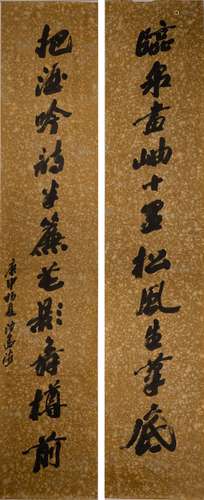 臨泉畫岫十里松風生筆底
把酒吟詩半簾花影落樽前
庚申初夏沙孟海